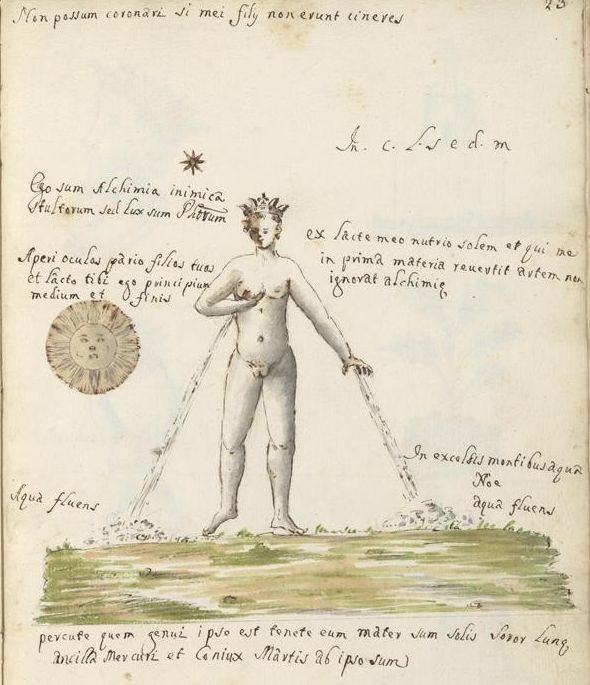 23
Non possum coronari si mei filij non erunt cineres
In. c. l. s e d. m
Ego sum Alchimia inimica
stultorum sed lux sum
Aperi oculos pario filios tuos
et lacto tibi ego principium
medium et finis
ex lacte meo nutrio solem et qui me
in prima materia revertit artem non
ignorat alchimię
In excelsis montibus aqua
Noe
aqua fluens
Aqua fluens
percute quem genui ipse est tenete eum mater sum solis soror Lunę
ancilla Mercuri et Coniux Martis ab ipso sum